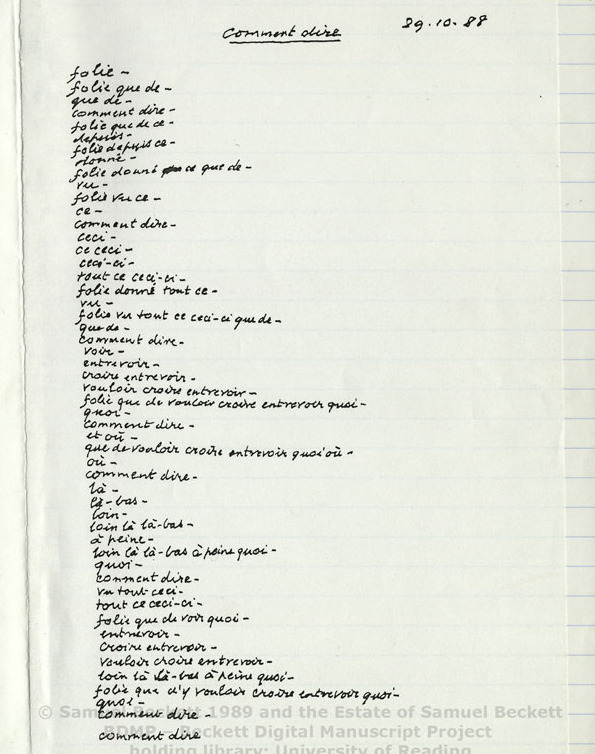 Comment dire 29.10.88
folie –
folie que de –
que de –
comment dire –
folie que de ce –
depuis –
folie depuis ce –
donné –
folie donné ce que de –
vu –
folie vu ce –
ce –
comment dire –
ceci –
ce ceci –
ceci-ci –
tout ce ceci-ci –
folie donné tout ce –
vu –
folie vu tout ce ceci-ci que de –
que de –
comment dire –
voir –
entrevoir –
croire entrevoir –
vouloir croire entrevoir –
folie que de vouloir croire entrevoir quoi –
quoi –
comment dire –
et où –
que de vouloir croire entrevoir quoi où –
où –
comment dire –
là –
là-bas –
loin –
loin là là-bas –
à peine –
loin là là-bas à peine quoi –
quoi –
comment dire –
vu tout ceci –
tout ce ceci-ci –
folie que de voir quoi –
entrevoir –
croire entrevoir –
vouloir croire entrevoir –
loin là là-bas à peine quoi –
folie que d'y vouloir croire entrevoir quoi –
quoi –
comment dire –
comment dire
© Samuel Beckett 1989 and the Estate of Samuel Beckett
BDMP - Beckett Digital Manuscript Project
holding library: University of Reading